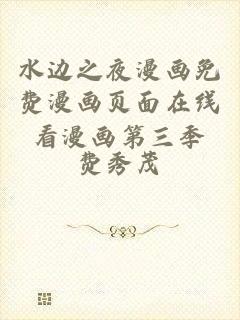 水边之夜漫画免
费漫画页面在线
看漫画第三季
费秀茂